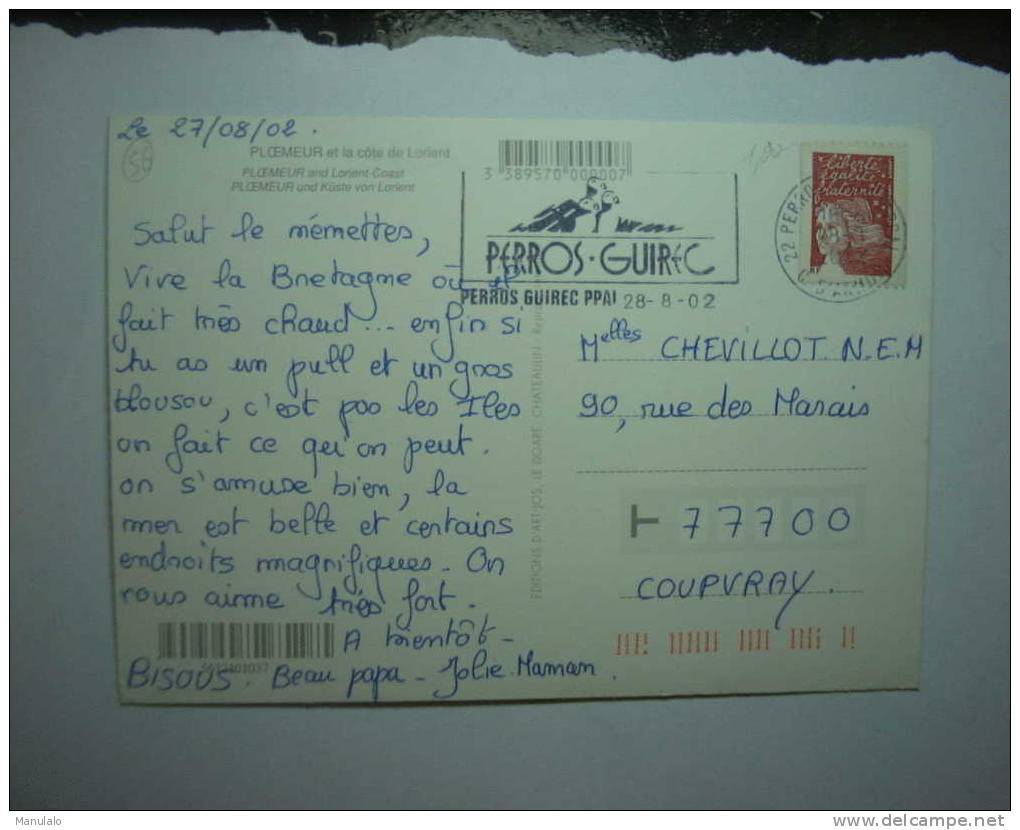 Le 27/08/02.
56
PLŒMEUR et la côte de Lorient
PLŒMEUR and Lorient-Coast
PLŒMEUR und Küste von Lorient
3 389570 000007
PERROS-GUIREC
PERROS GUIREC PPAL 28-8-02
liberté
égalité
fraternité
RF
22 PERROS
C. D'ARMOR
Salut le mémettes,
Vive la Bretagne où il
fait très chaud... enfin si
tu as un pull et un gros
blouson, c'est pas les Iles
on fait ce qu'on peut.
on s'amuse bien, la
mer est belle et certains
endroits magnifiques. On
vous aime très fort.
A bientôt -
BISOUS. Beau papa - Jolie Maman.
EDITIONS D'ART JOS LE DOARE CHATEAULIN
Melles CHEVILLOT N.E.M
90, rue des Marais
77700
COUPVRAY.
Manulalo
delcampe.net